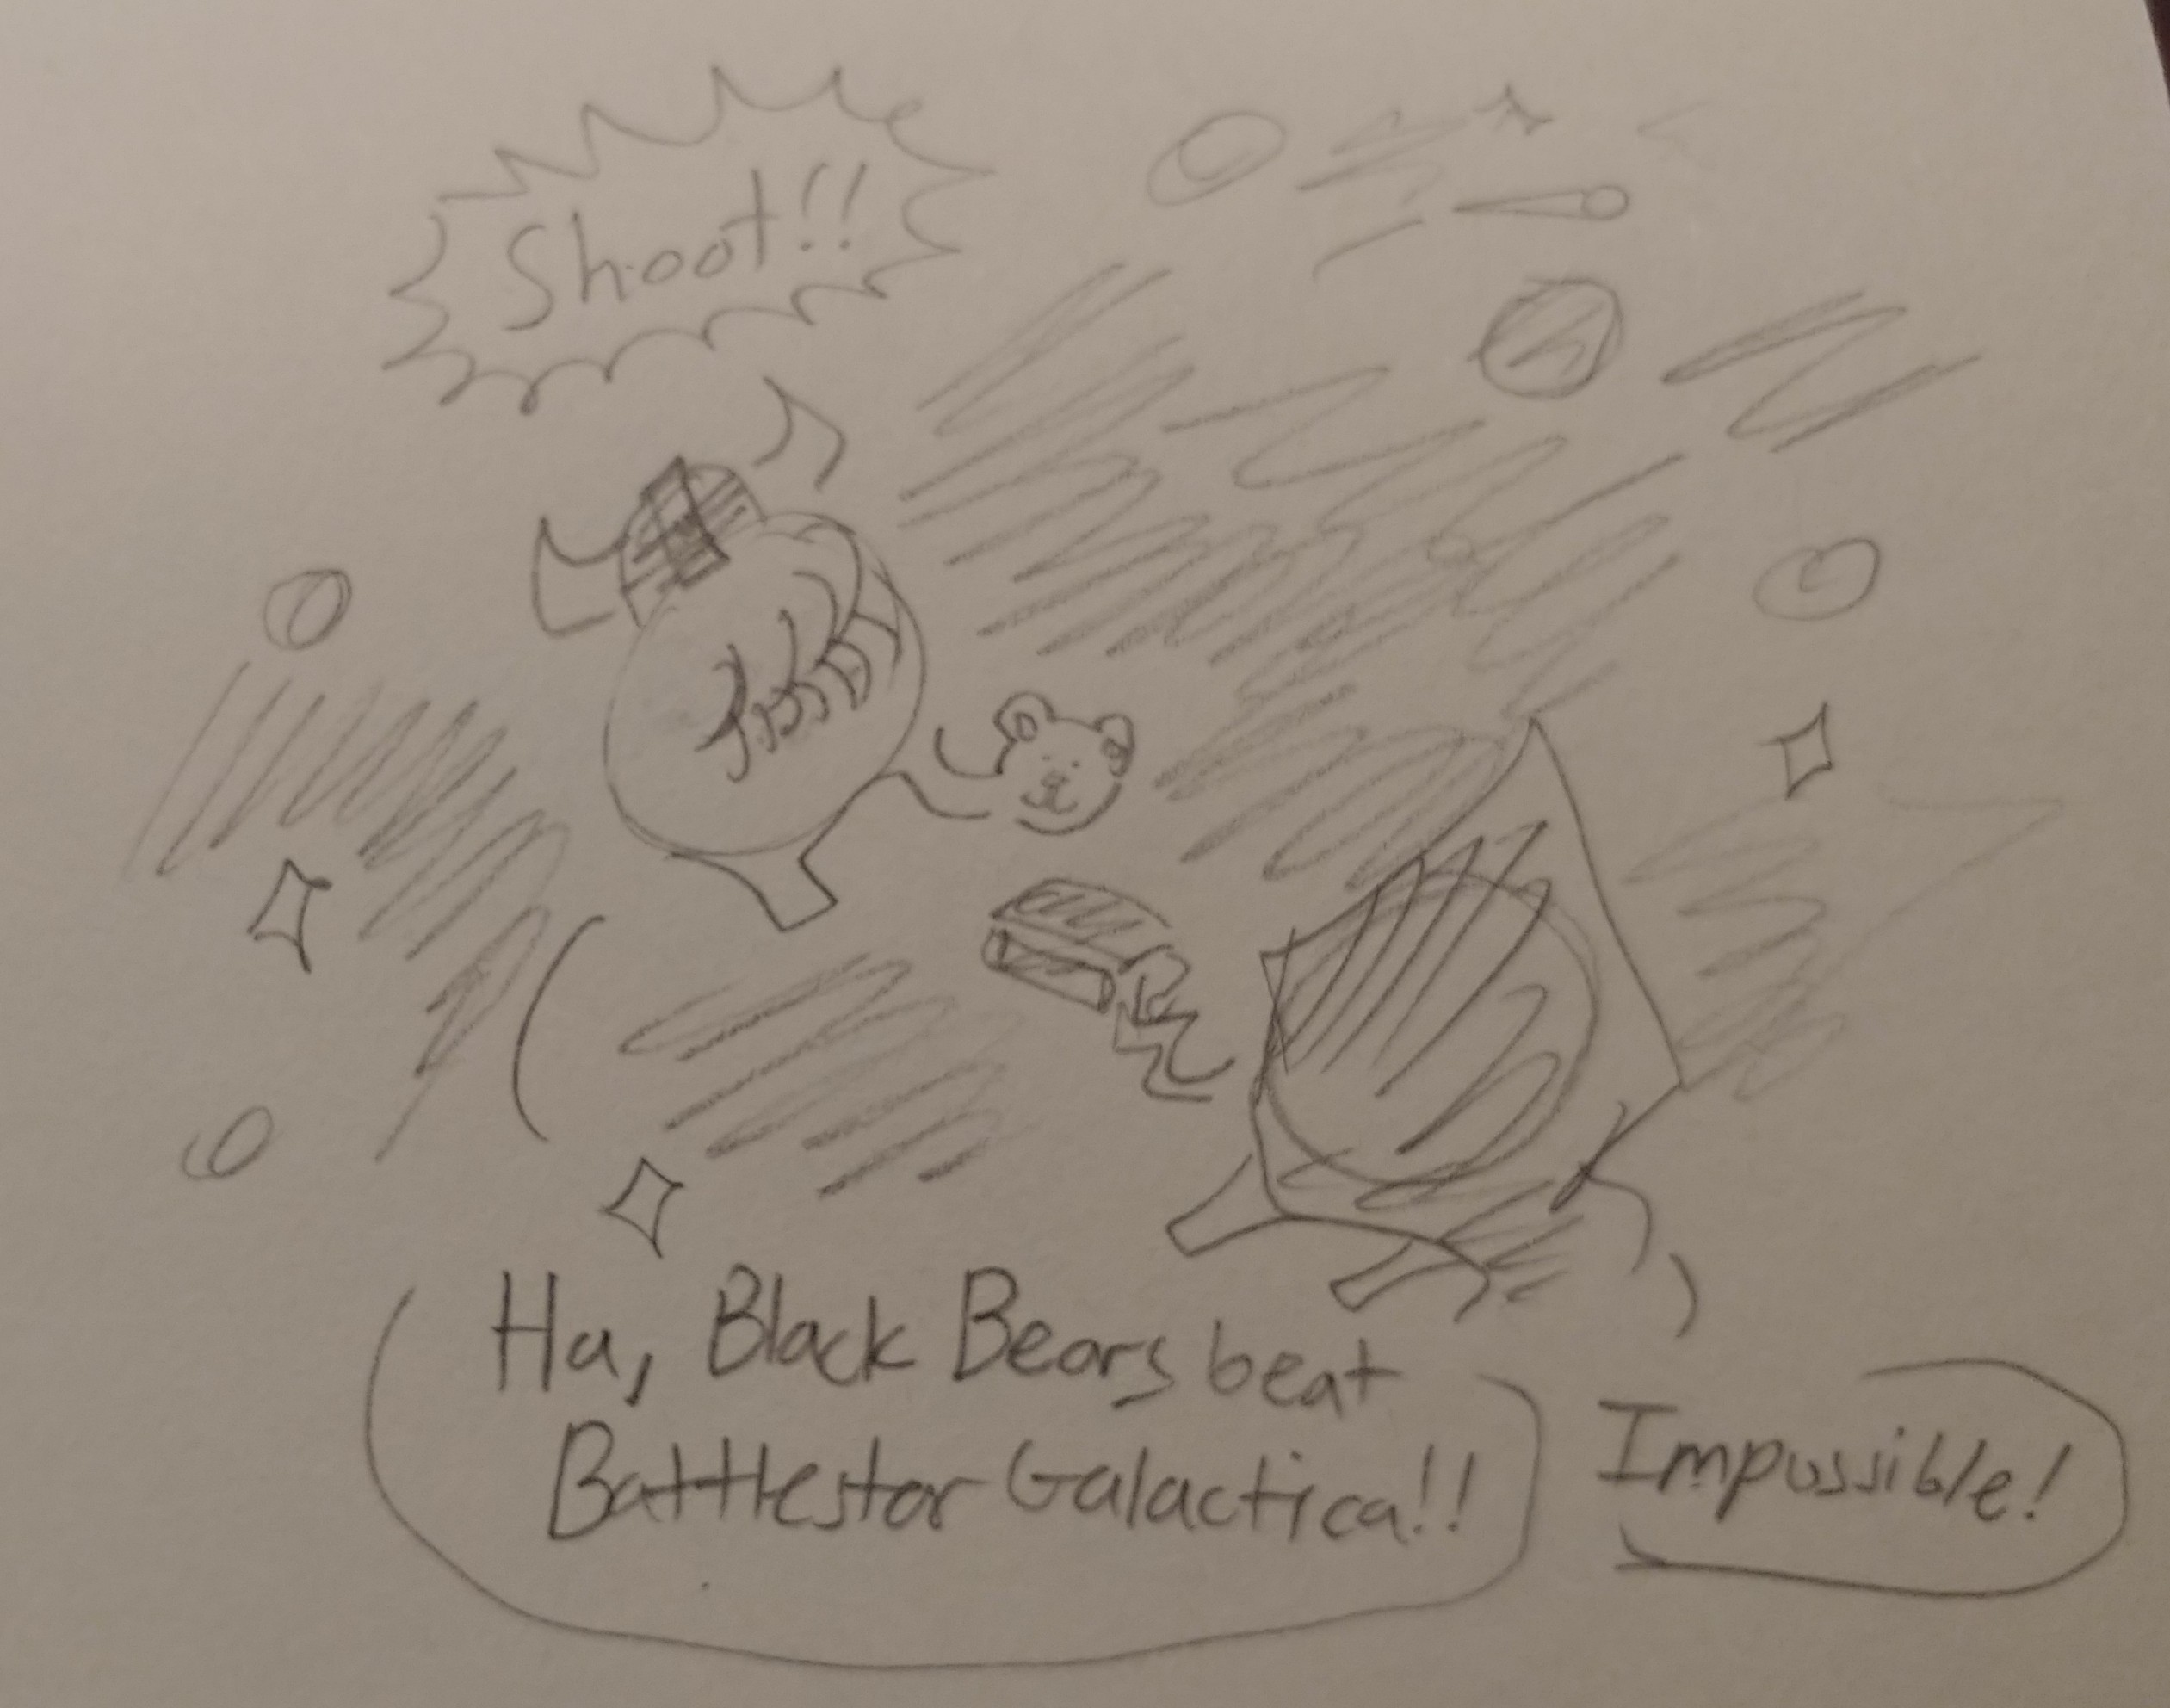 Shoot!!
Ha, Black Bears beat
Battlestar Galactica!!
Impossible!